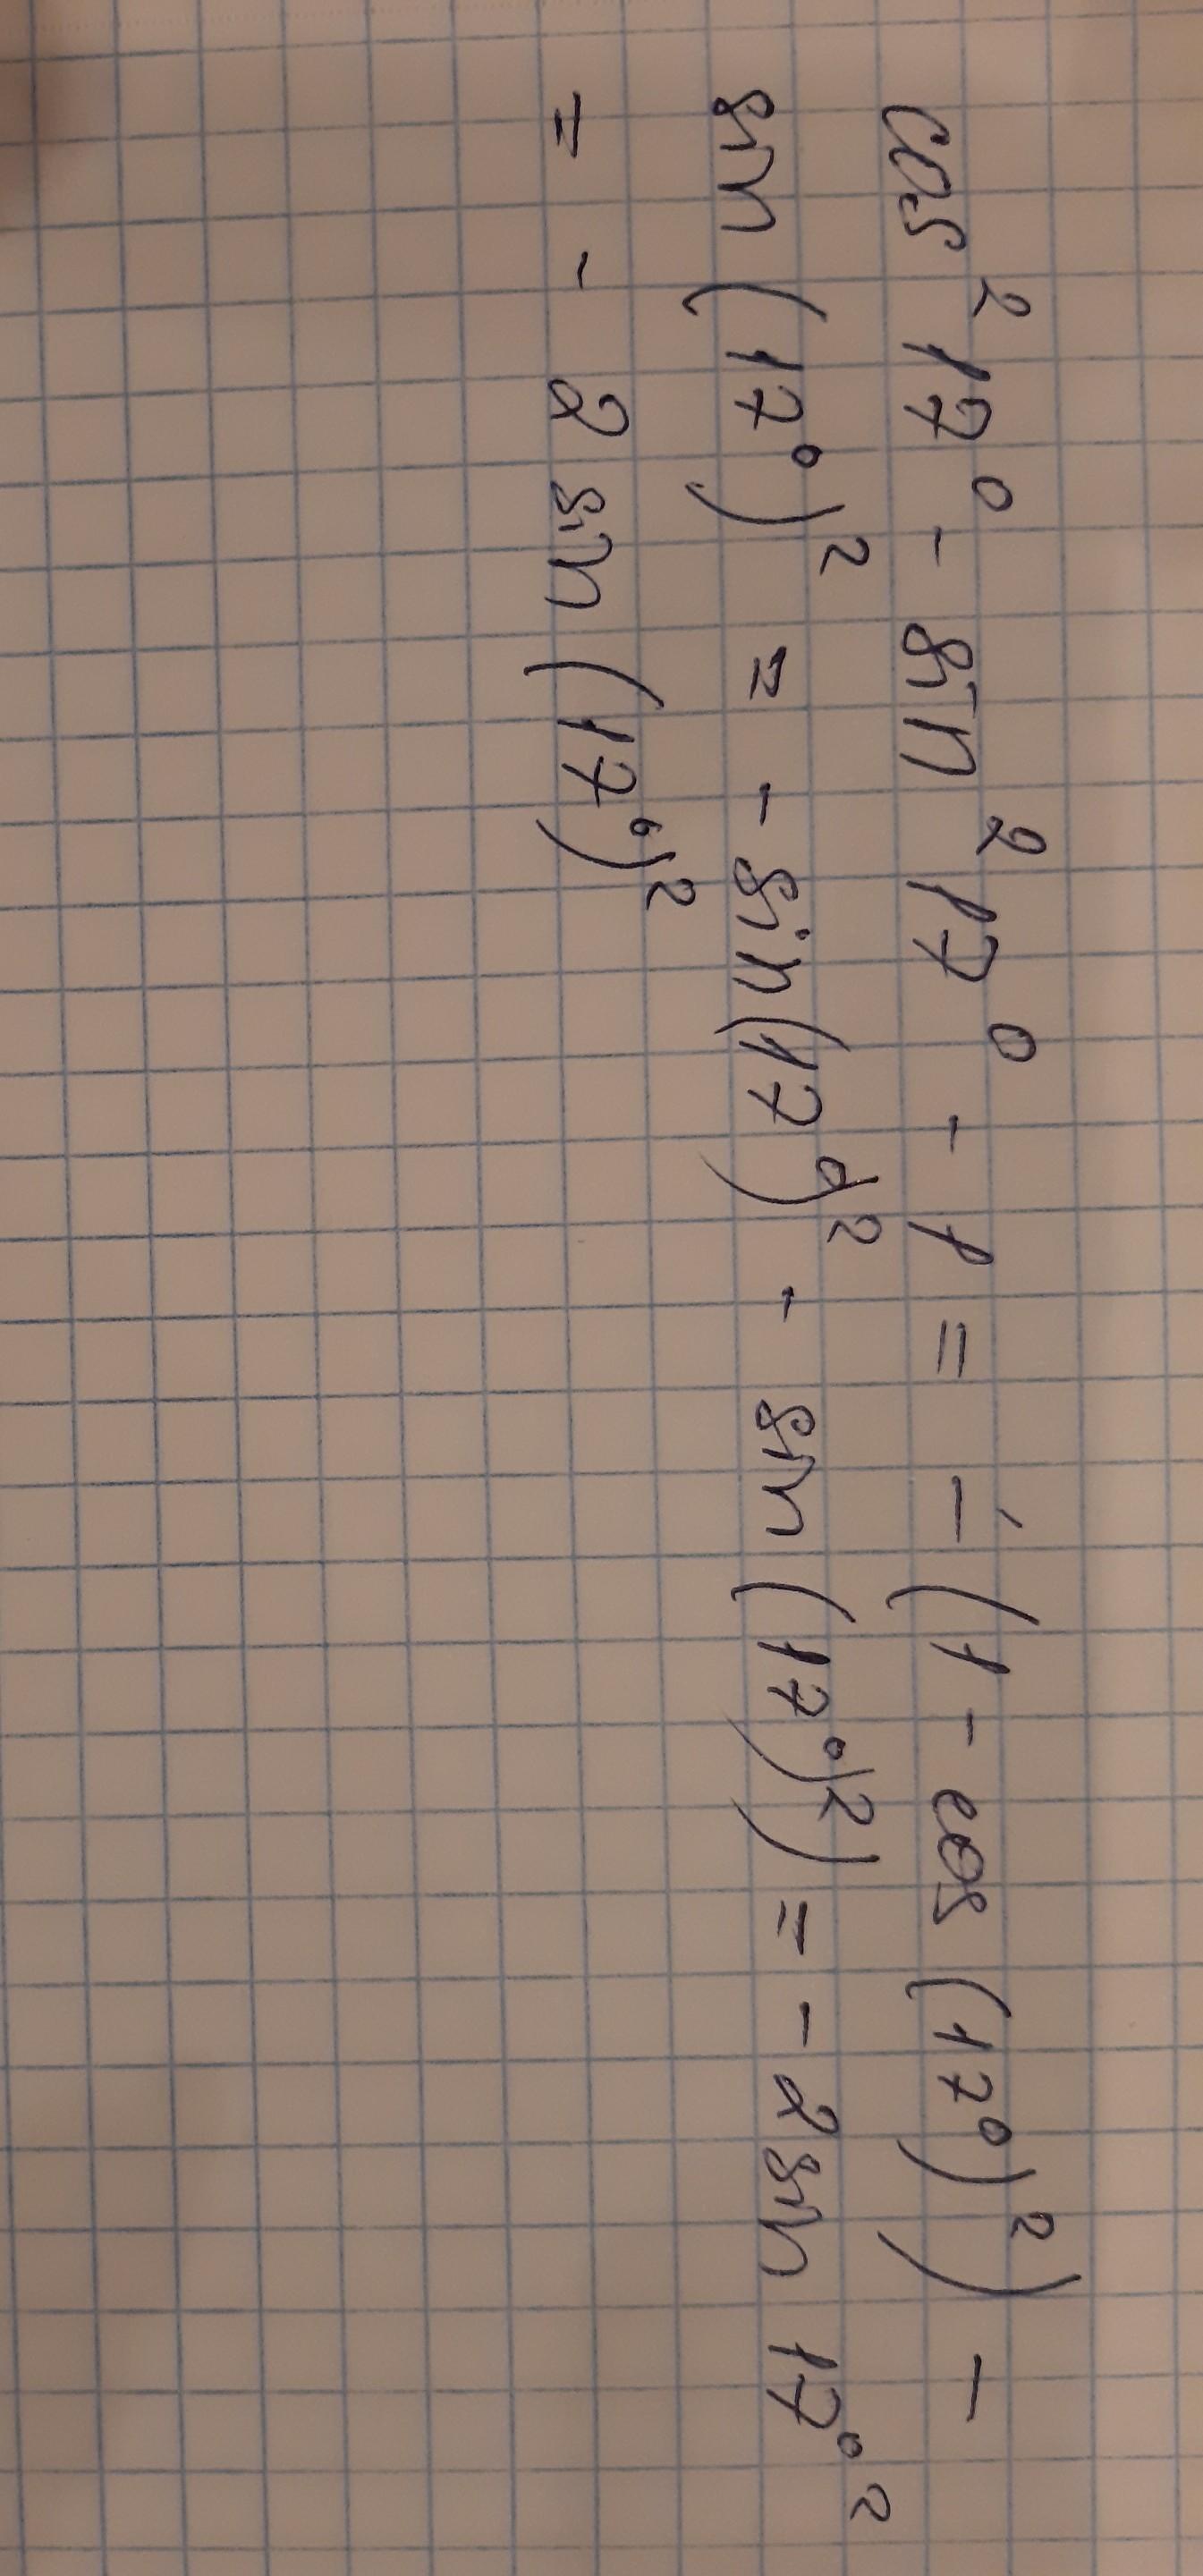 cos² 17° - sin² 17° - 1 = - (1 - cos (17°)²) -
sin (17°)² = - sin (17°)² - sin (17°)²) = - 2 sin 17° ²
= - 2 sin (17°)²